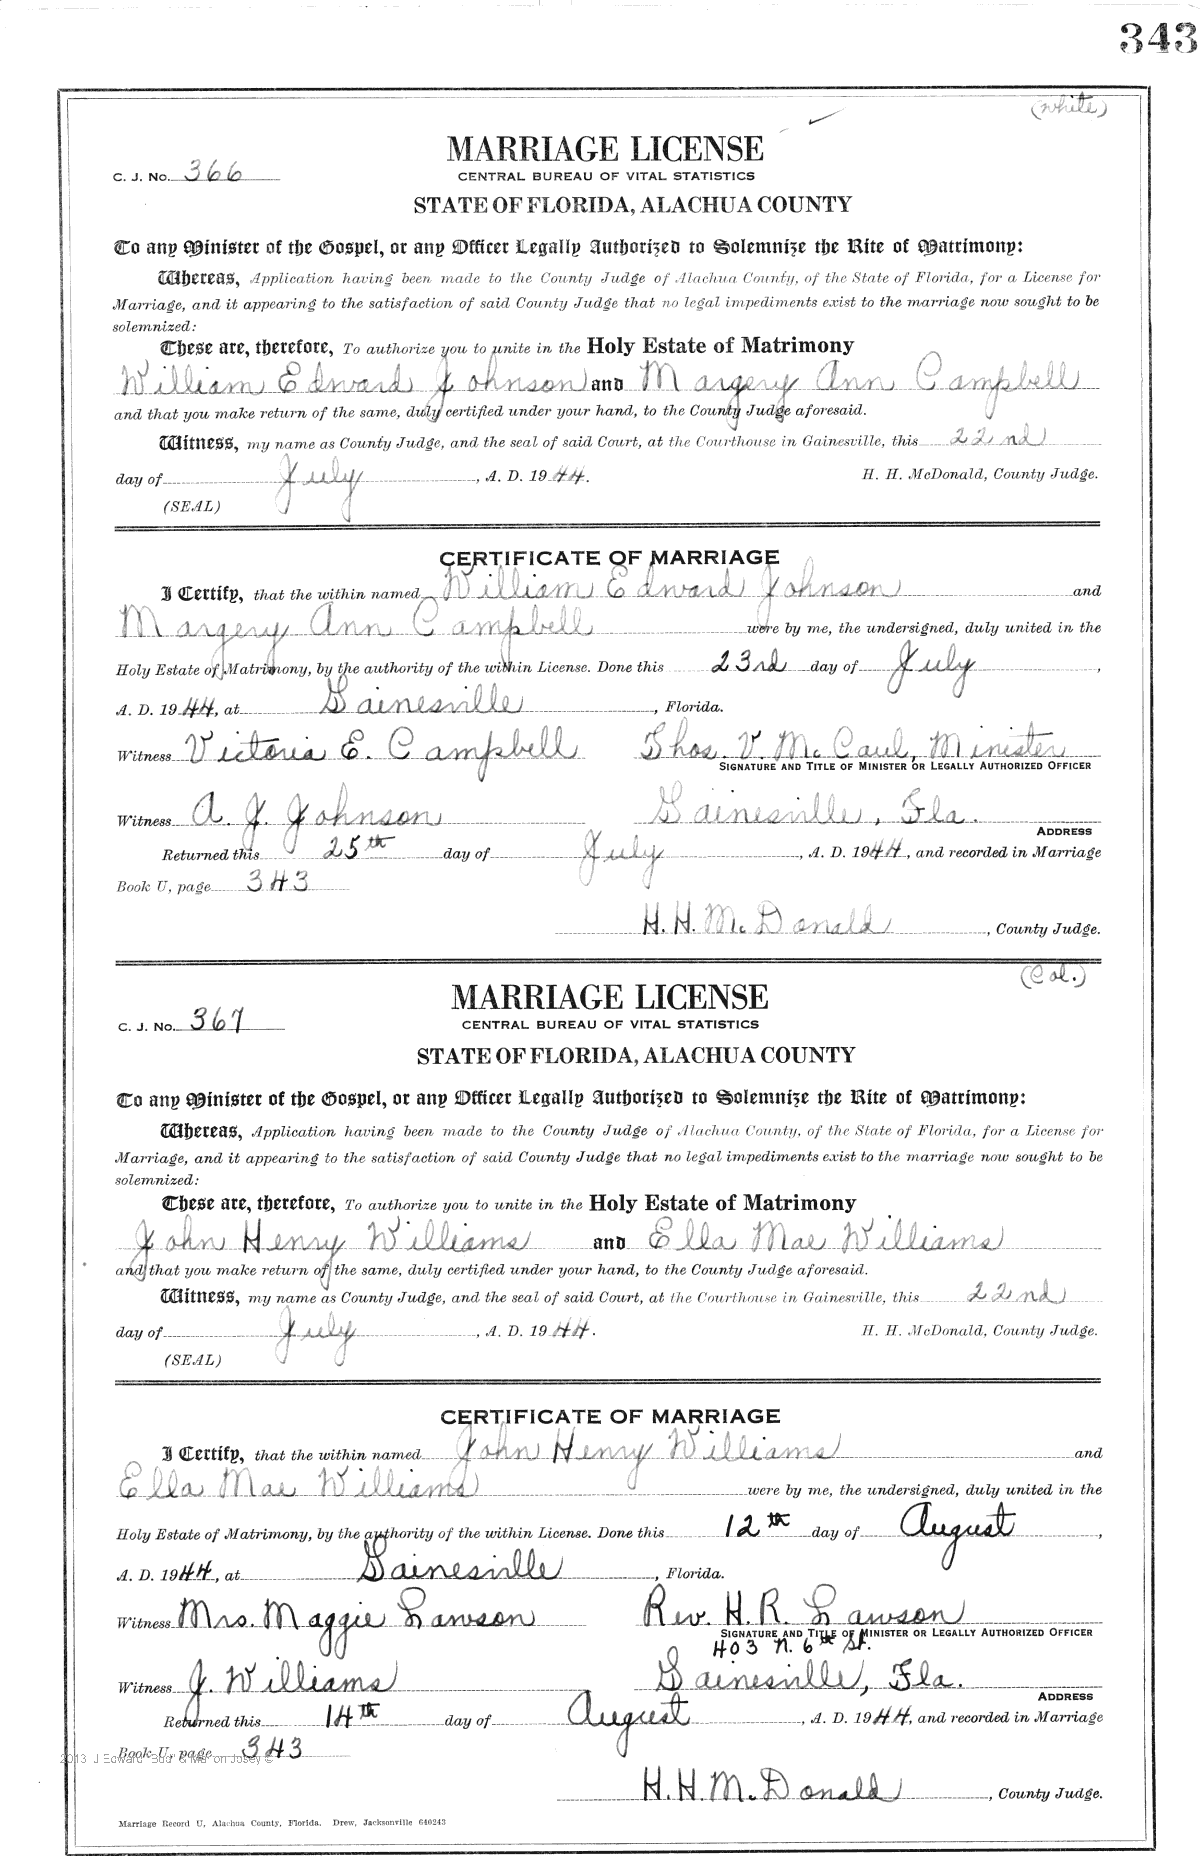 343
(white)
MARRIAGE LICENSE
C. J. No. 366
CENTRAL BUREAU OF VITAL STATISTICS
STATE OF FLORIDA, ALACHUA COUNTY
To any Minister of the Gospel, or any Officer Legally Authorized to Solemnize the Rite of Matrimony:
Whereas, Application having been made to the County Judge of Alachua County, of the State of Florida, for a License for
Marriage, and it appearing to the satisfaction of said County Judge that no legal impediments exist to the marriage now sought to be
solemnized:
These are, therefore, To authorize you to unite in the Holy Estate of Matrimony
William Edward Johnson and Margery Ann Campbell
and that you make return of the same, duly certified under your hand, to the County Judge aforesaid.
Witness, my name as County Judge, and the seal of said Court, at the Courthouse in Gainesville, this 22nd
day of July, A. D. 1944. H. H. McDonald, County Judge.
(SEAL)
CERTIFICATE OF MARRIAGE
I Certify, that the within named William Edward Johnson and
Margery Ann Campbell were by me, the undersigned, duly united in the
Holy Estate of Matrimony, by the authority of the within License. Done this 23rd day of July,
A. D. 1944, at Gainesville, Florida.
Witness Victoria E. Campbell Thos. V. McCaul, Minister
SIGNATURE AND TITLE OF MINISTER OR LEGALLY AUTHORIZED OFFICER
Witness A. J. Johnson Gainesville, Fla.
ADDRESS
Returned this 25th day of July, A. D. 1944, and recorded in Marriage
Book U, page 343
H. H. McDonald, County Judge.
(Col.)
MARRIAGE LICENSE
C. J. No. 367
CENTRAL BUREAU OF VITAL STATISTICS
STATE OF FLORIDA, ALACHUA COUNTY
To any Minister of the Gospel, or any Officer Legally Authorized to Solemnize the Rite of Matrimony:
Whereas, Application having been made to the County Judge of Alachua County, of the State of Florida, for a License for
Marriage, and it appearing to the satisfaction of said County Judge that no legal impediments exist to the marriage now sought to be
solemnized:
These are, therefore, To authorize you to unite in the Holy Estate of Matrimony
John Henry Williams and Ella Mae Williams
and that you make return of the same, duly certified under your hand, to the County Judge aforesaid.
Witness, my name as County Judge, and the seal of said Court, at the Courthouse in Gainesville, this 22nd
day of July, A. D. 1944. H. H. McDonald, County Judge.
(SEAL)
CERTIFICATE OF MARRIAGE
I Certify, that the within named John Henry Williams and
Ella Mae Williams were by me, the undersigned, duly united in the
Holy Estate of Matrimony, by the authority of the within License. Done this 12th day of August,
A. D. 1944, at Gainesville, Florida.
Witness Mrs. Maggie Lawson Rev. H. R. Lawson
SIGNATURE AND TITLE OF MINISTER OR LEGALLY AUTHORIZED OFFICER
403 N. 6th St.
Witness J. Williams Gainesville, Fla.
ADDRESS
Returned this 14th day of August, A. D. 1944, and recorded in Marriage
Book U, page 343
2013 J Edward Bud & Marion Josey ©
H. H. McDonald, County Judge.
Marriage Record U, Alachua County, Florida. Drew, Jacksonville 640243